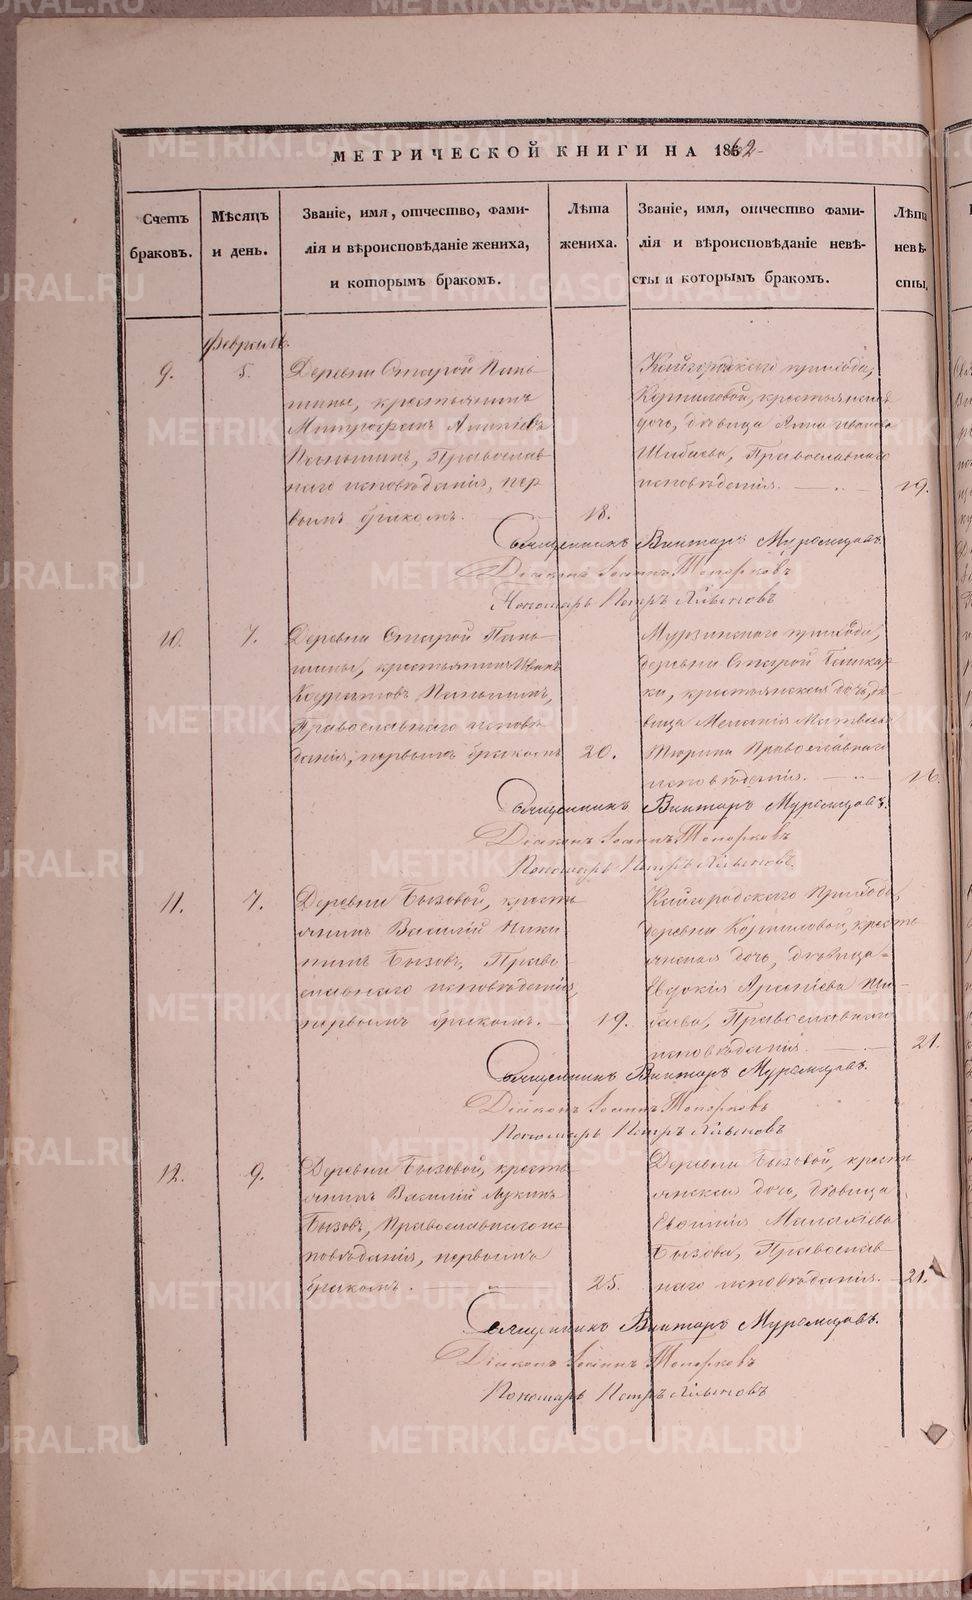 МЕТРИЧЕСКОЙ КНИГИ НА 1862
Счетъ
браковъ.
Мѣсяцъ
и день.
Званіе, имя, отчество, фами-
лія и вѣроисповѣданіе жениха,
и которымъ бракомъ.
Лѣта
жениха.
Званіе, имя, отчество фами-
лія и вѣроисповѣданіе невѣ-
сты и которымъ бракомъ.
Лѣта
невѣ-
сты,
Февраль.
9.
5.
Деревни Старой Пань-
шины, крестьянинъ
Митрофанъ
Паньшинъ, Православ
наго исповѣданія, пер
вымъ бракомъ.
18.
Кайгородскаго прихода,
Корниловой, крестьянская
дочь, дѣвица Анна Иванова
Шибаева, Православнаго
исповѣданія.
19.
Священникъ Викторъ Муромцовъ.
Діаконъ Іоаннъ Топорковъ
Пономарь Петръ
10.
7.
Деревни Старой Пань
шины, крестьянинъ Иванъ
Паньшинъ,
Православнаго исповѣ
данія, первымъ бракомъ
20.
Мурзинскаго прихода,
деревни Старой Башкар
ки, крестьянская дочь, дѣ-
вица Меланія Матвѣева
Тюрина Православнаго
исповѣданія.
16.
Священникъ Викторъ Муромцовъ.
Діаконъ Іоаннъ Топорковъ
Пономарь Петръ
11.
7.
Деревни Бызовой, кресть
янинъ Василій Ники
тинъ Бызовъ, Право
славнаго исповѣданія,
первымъ бракомъ.
19.
Кайгородскаго Прихода,
деревни Корниловой, кресть
янская дочь, дѣвица
Евдокія Ши-
баева, Православнаго
исповѣданія.
21.
Священникъ Викторъ Муромцовъ.
Діаконъ Іоаннъ Топорковъ
Пономарь Петръ
12.
9.
Деревни Бызовой, кресть
янинъ Василій Лукинъ
Бызовъ, Православнаго ис
повѣданія, первымъ
бракомъ.
25.
Деревни Бызовой, кресть
янская дочь, дѣвица
Евфимія Малахіева
Бызова, Православ
наго исповѣданія.
21.
Священникъ Викторъ Муромцовъ.
Діаконъ Іоаннъ Топорковъ
Пономарь Петръ
METRIKI.GASO-URAL.RU